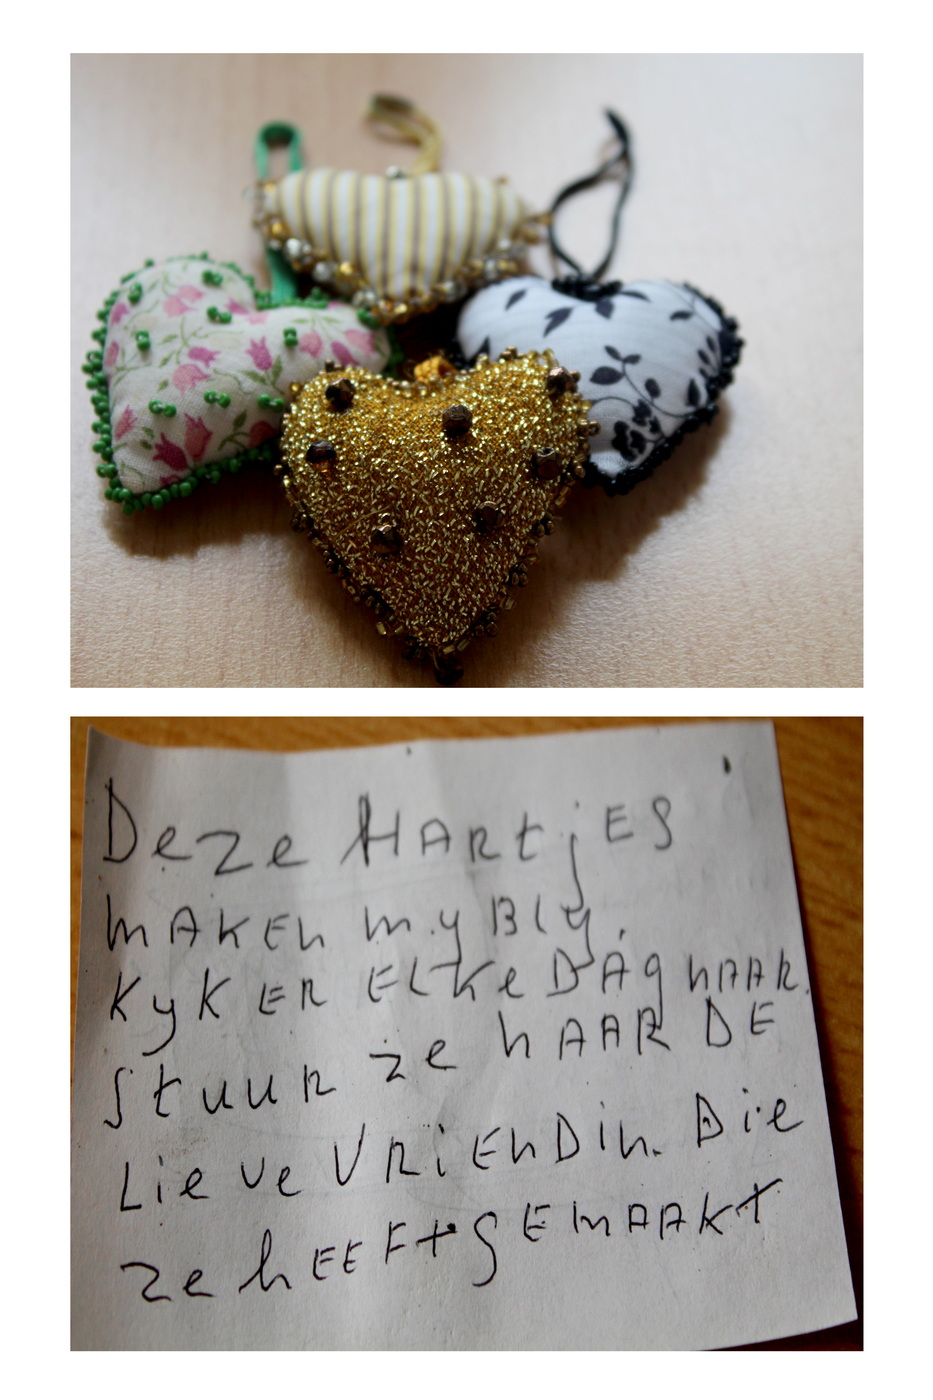 Deze HARtjES
mAKEn my Bly.
KyK ER ELKe DAg nAAR.
StuuR ze nAAR DE
Lieve VRiEnDin. Die
ze hEEFt gEmAAkt